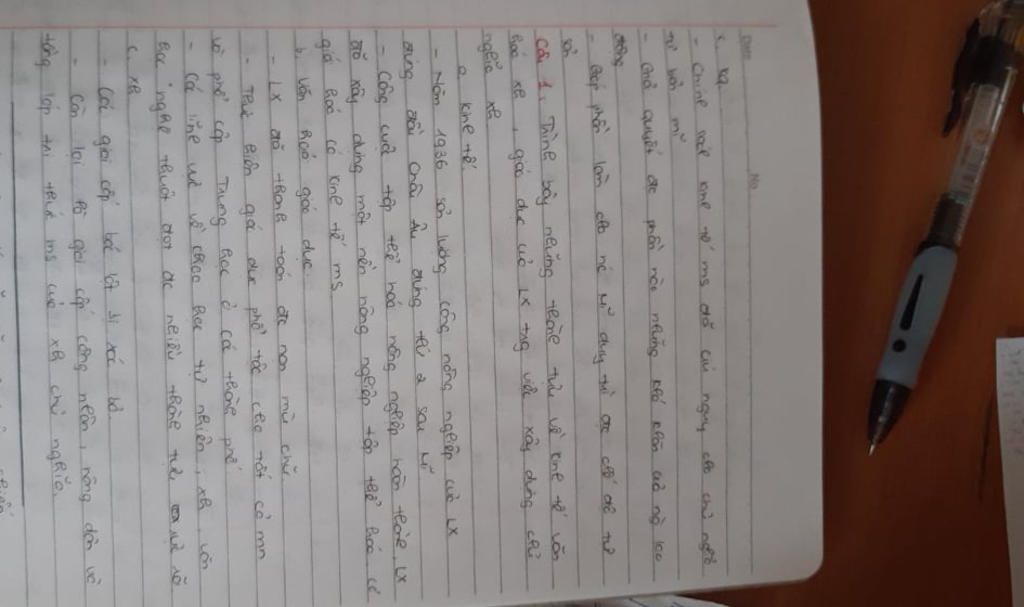 Date No
* KQ
- Chính sách kinh tế ms đã cứu nguy cho chủ nghĩa
tư bản mĩ
- Giải quyết đc phần nào những khó khăn của ng lao
động
- Góp phần làm cho nc Mĩ duy trì đc chế độ tư
sản
Câu 1. Trình bày những thành tựu về kinh tế văn
hoá xh, giáo dục của LX trng việc xây dựng chủ
nghĩa xh
a, kinh tế.
- Năm 1936 sản lượng công nông nghiệp của LX
đứng đầu Châu Âu đứng thứ 2 sau Mĩ
- Công cuộc tập thể hoá nông nghiệp hoàn thành, LX
đã xây dựng một nền nông nghiệp tập thể hoá, cơ
giới hoá có kinh tế ms
b, văn hoá giáo dục
- LX đã thanh toán đc nạn mù chữ
- Thực hiện giáo dục phổ tập cho tất cả mn
và phổ cập Trung học ở các thành phố
- Các lĩnh vực về khoa học tự nhiên, xh, văn
học nghệ thuật đạt đc nhiều thành tựu
c. xh
- Các giai cấp bóc lột bị xoá bỏ
- Còn lại là giai cấp công nhân, nông dân và
tầng lớp tri thức ms của xh chủ nghĩa.